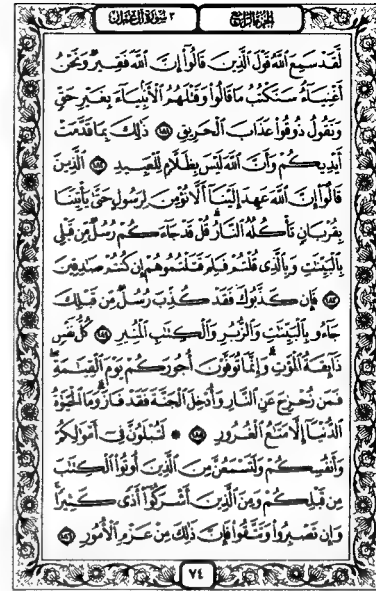 الجزء الرابع ٣ سورة آل عمران
لَّقَدْ سَمِعَ ٱللَّهُ قَوْلَ ٱلَّذِينَ قَالُوٓا۟ إِنَّ ٱللَّهَ فَقِيرٌ وَنَحْنُ
أَغْنِيَآءُ سَنَكْتُبُ مَا قَالُوا۟ وَقَتْلَهُمُ ٱلْأَنۢبِيَآءَ بِغَيْرِ حَقٍّ
وَنَقُولُ ذُوقُوا۟ عَذَابَ ٱلْحَرِيقِ ١٨١ ذَٰلِكَ بِمَا قَدَّمَتْ
أَيْدِيكُمْ وَأَنَّ ٱللَّهَ لَيْسَ بِظَلَّامٍ لِّلْعَبِيدِ ١٨٢ ٱلَّذِينَ
قَالُوٓا۟ إِنَّ ٱللَّهَ عَهِدَ إِلَيْنَآ أَلَّا نُؤْمِنَ لِرَسُولٍ حَتَّىٰ يَأْتِيَنَا
بِقُرْبَانٍ تَأْكُلُهُ ٱلنَّارُ ۗ قُلْ قَدْ جَآءَكُمْ رُسُلٌ مِّن قَبْلِى
بِٱلْبَيِّنَٰتِ وَبِٱلَّذِى قُلْتُمْ فَلِمَ قَتَلْتُمُوهُمْ إِن كُنتُمْ صَٰدِقِينَ
١٨٣ فَإِن كَذَّبُوكَ فَقَدْ كُذِّبَ رُسُلٌ مِّن قَبْلِكَ
جَآءُو بِٱلْبَيِّنَٰتِ وَٱلزُّبُرِ وَٱلْكِتَٰبِ ٱلْمُنِيرِ ١٨٤ كُلُّ نَفْسٍ
ذَآئِقَةُ ٱلْمَوْتِ ۗ وَإِنَّمَا تُوَفَّوْنَ أُجُورَكُمْ يَوْمَ ٱلْقِيَٰمَةِ ۖ
فَمَن زُحْزِحَ عَنِ ٱلنَّارِ وَأُدْخِلَ ٱلْجَنَّةَ فَقَدْ فَازَ ۗ وَمَا ٱلْحَيَوٰةُ
ٱلدُّنْيَآ إِلَّا مَتَٰعُ ٱلْغُرُورِ ١٨٥ ۞ لَتُبْلَوُنَّ فِىٓ أَمْوَٰلِكُمْ
وَأَنفُسِكُمْ وَلَتَسْمَعُنَّ مِنَ ٱلَّذِينَ أُوتُوا۟ ٱلْكِتَٰبَ
مِن قَبْلِكُمْ وَمِنَ ٱلَّذِينَ أَشْرَكُوٓا۟ أَذًى كَثِيرًا ۚ
وَإِن تَصْبِرُوا۟ وَتَتَّقُوا۟ فَإِنَّ ذَٰلِكَ مِنْ عَزْمِ ٱلْأُمُورِ ١٨٦
٧٤